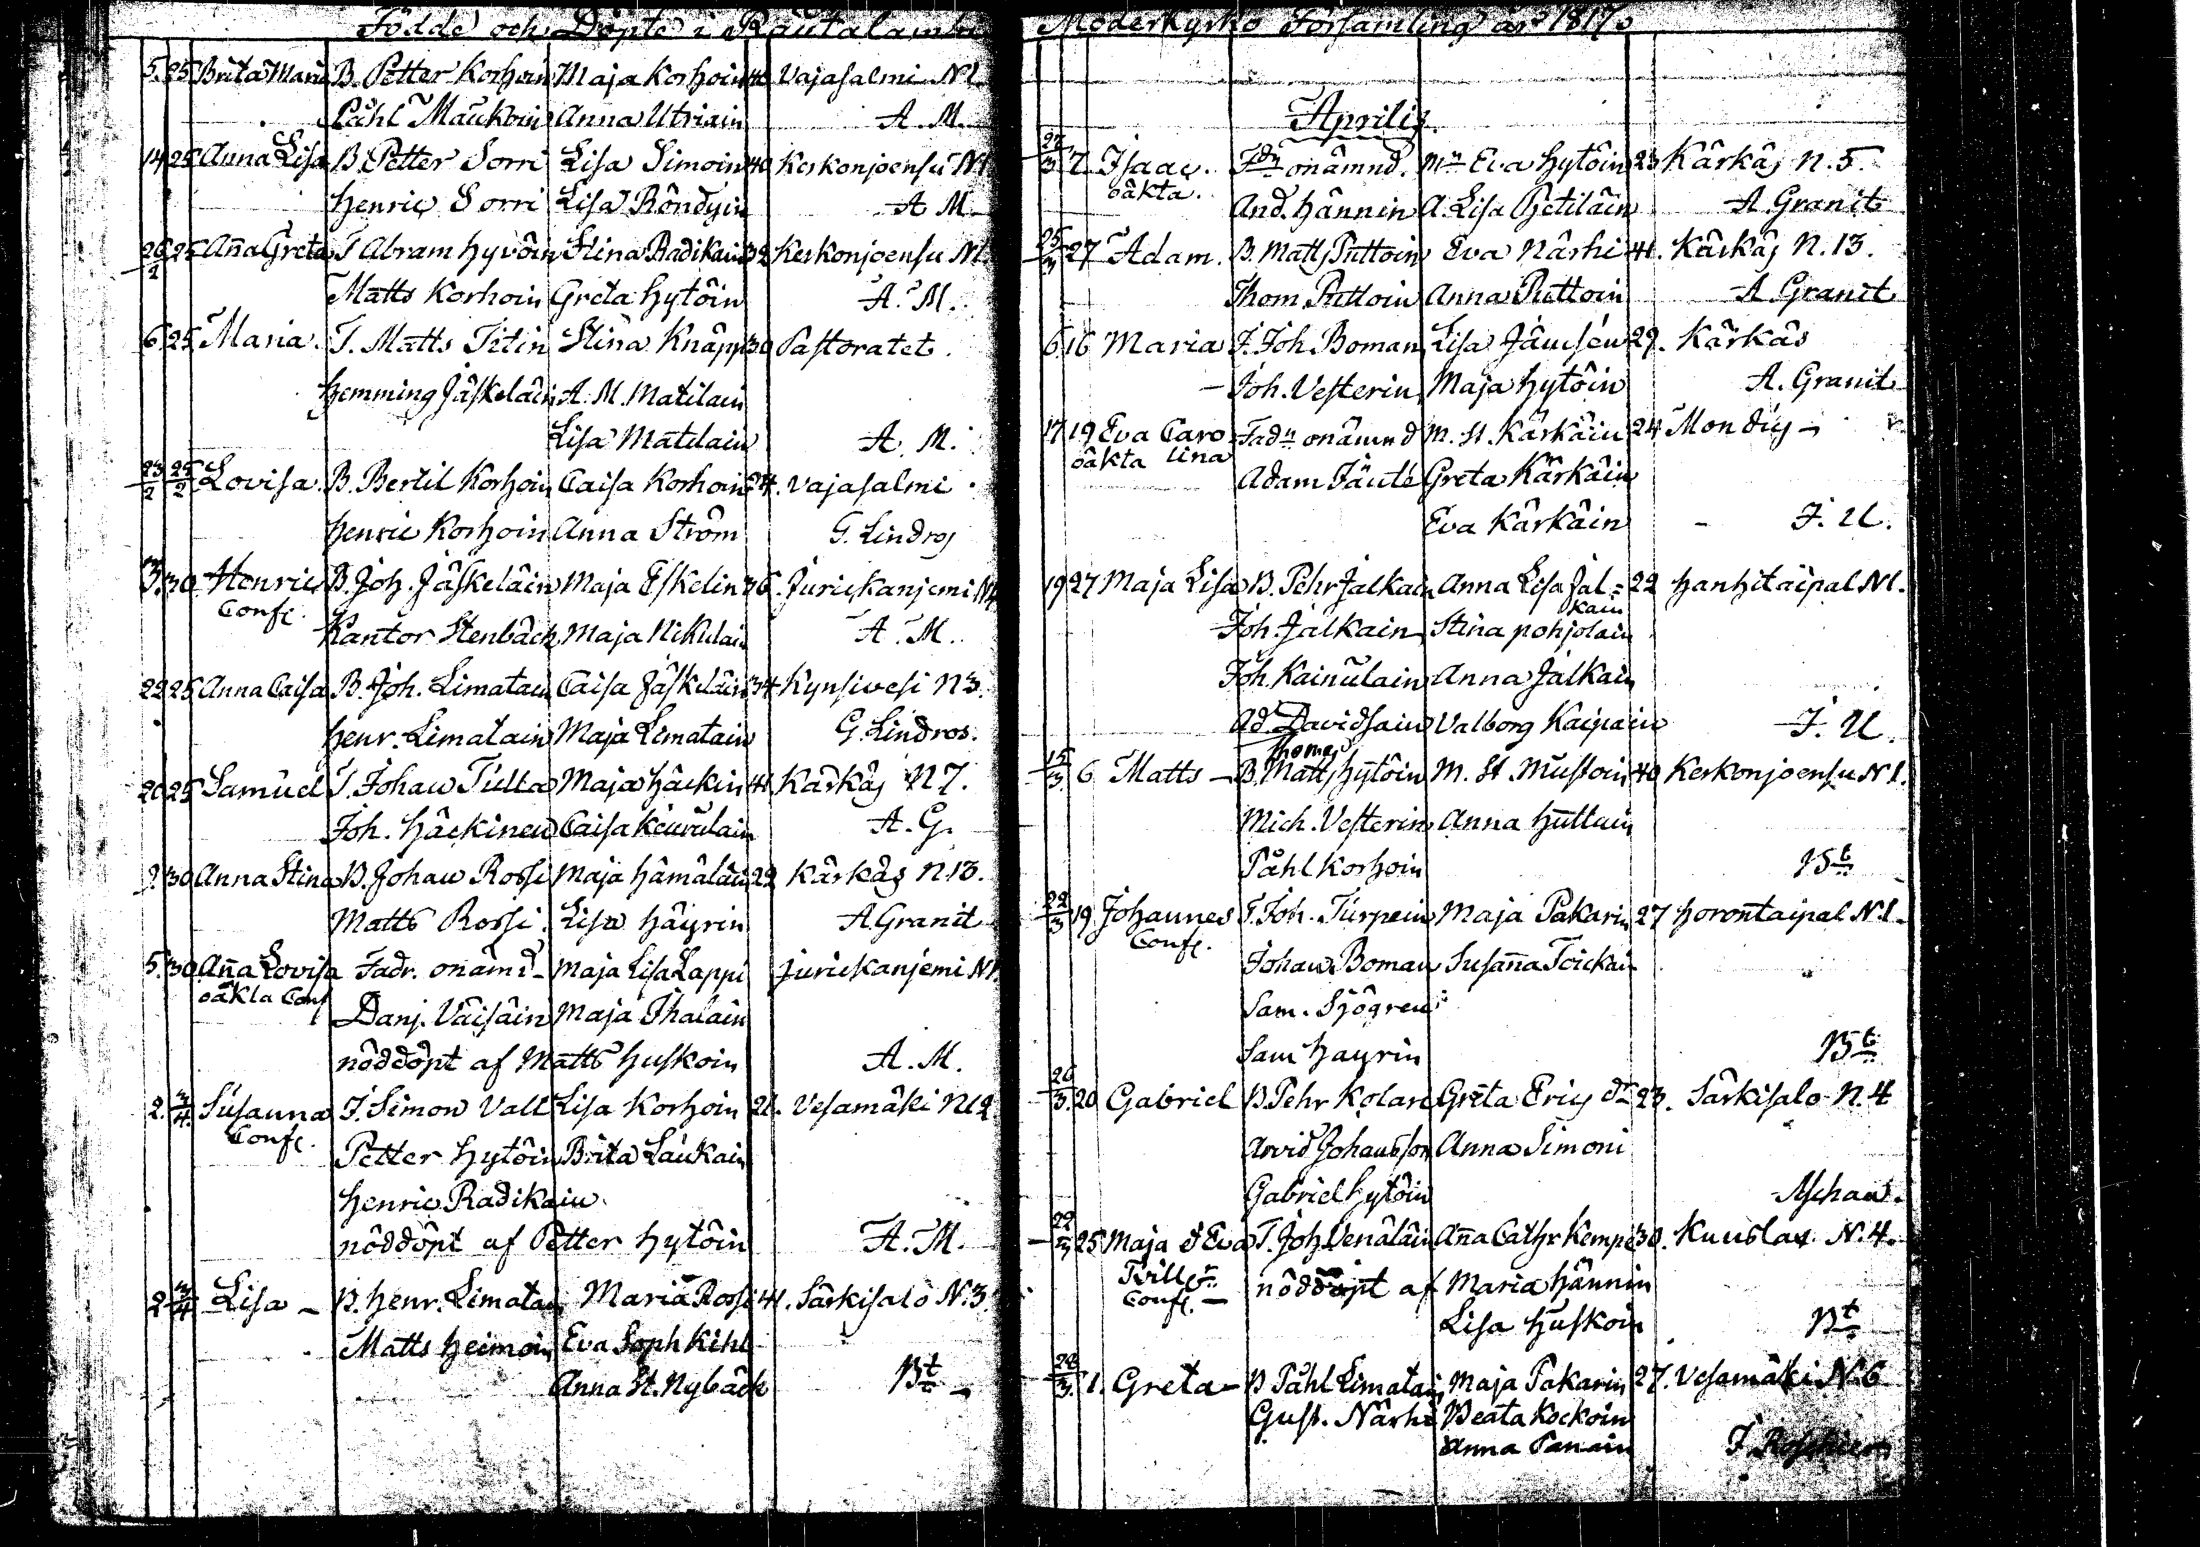 Födde och Döpte i Rautalambi
5. 25 Brita Maria B. Petter Korhoin Maja Korhoin 40 Vajasalmi N1.
Påhl Maukoin Anna Utriain A. M.
14 25 Anna Lisa B. Petter Sorri Lisa Simoin 40 Keskonjoensu N1
Henric Sorri Lisa Röndyin A M.
26/2 25 Aña Greta T Abram Hyvöin Stina Radikain 32 Keskonjoensu N1.
Matts Korhoin Greta Hytöin A. M.
6. 25 Maria. T. Matts Titin Stina Knapp 30 Pastoratet.
Hemming Jäskeläin A. M. Matilain
Lisa Matilain A. M.
23/2 25/2 Lovisa. B. Bertil Korhoin Caisa Korhoin 24. Vajasalmi
Henric Korhoin Anna Ström G. Lindros
3. 30 Henric B. Joh. Jäskeläin Maja Eskelin 36. Jurickanjemi N4
Conf.
Kantor Stenbäck Maja Nikulain A. M.
22 25 Anna Caisa B. Joh. Limatain Caisa Jäskeläin 34 Kynsivesi N3.
Henr. Limatain Maja Limatain G. Lindros.
20 25 Samuel T. Johan Tulta Maja Häckin 41 Kärkäs N 7.
Joh. Häckinen Caisa Keurulain A. G.
9. 30 Anna Stina B. Johan Rossi Maja Hämäläin 29 Kärkäs N. 13.
Matts Rossi. Lisa Häyrin A. Granit
5. 30 Aña Lovisa Fadr. onämd Maja Lisa Lappi Jurickanjemi N1.
oäkta Conf
Danj. Väisäin Maja Ihalain
nöddöpt af Matts Huskoin A. M.
2. 3/4. Susanna T. Simon Vall Lisa Korhoin 21. Vesamäki N12
Conf.
Petter Hytöin Brita Laukain
Henric Radikain
nöddöpt af Petter Hytöin A. M.
2 3/4 Lisa B. Henr. Limatain Maria Rossi 41. Särkisalo N. 3
Matts Heimoin Eva Soph Kihl
Anna St. Nybäck Bt
Moderkyrko Församling år 1817.
Aprilis.
22/3 7. Isaac. Fdn onämnd. Mn Eva Hytöin 23 Kärkäs N. 5.
oäkta.
And. Hännin A. Lisa Petiläin A Granit
25/3 27 Adam. B. Matts Puttoin Eva Närhi 41. Kärkäs N. 13.
Thom Puttoin Anna Puttoin A Granit
6 16 Maria T. Joh. Boman Lisa Jämsén 29. Kärkäs
Joh. Vesterin Maja Hytöin A. Granit
17 19 Eva Caro Fadn onämnd M. St. Kärkäin 24. Mondis
oäkta lina
Adam Jänté Greta Kärkäin
Eva Kärkäin J. U.
19 27 Maja Lisa B. Pehr Jalkain Anna Lisa Jal= 22 Hanhitaipal N1.
kain
Joh. Jalkain Stina Pohjolain
Joh. Kainulain Anna Jalkain
Ad. Davidsain Valborg Kaipain J. U.
Thomas
15/3. 6 Matts B. Matts Hytöin M. St. Mustoin 40 Keskonjoensu N1.
Mich. Vesterin Anna Huttuin
Påhl Korhoin Bt
22/3 19 Johannes T. Joh. Turpein Maja Pakarin 27 Horontaipal N. 1
Conf.
Johan Boman Susaña Toickain
Sam. Sjögren
Sam Hayrin Bt
26/3. 20 Gabriel B. Pehr Kolare Greta Erics dr 23. Särkisalo N. 4
Arvid Johansson Anna Simoni
Gabriel Hytöin Aschan.
22/3 25 Maja & Eva T. Joh Venäläin Aña Cathr Kempe 30. Kuuslax N. 4.
Tvill
Conf. nöddöpt af Maria Hännin
Lisa Huskoin Bt
28/3. 1. Greta B Påhl Limatain Maja Pakarin 27. Vesamäki N. 6
Gust. Närhi Beata Kockoin
Anna Panain J. Roschier